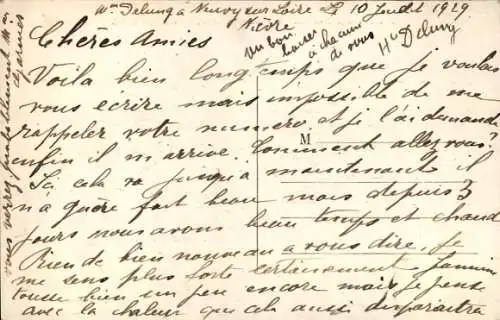 Mme Delung à Neuvy sur Loire Le 10 Juill 1929
Nièvre
un bon
baiser
à chacun
de vous
Hte Delung
Chères Amies
Voila bien longtemps que je voulais
vous écrire mais impossible de me
rappeler votre numero et je l'ai demandé
enfin il m'arrive. Comment allez vous.
M
Ici cela va jusqu'à maintenant il
n'a guère fait beau mais depuis 3
jours nous avons beau temps et chaud
Rien de bien nouveau a vous dire, Je
me sens plus forte certainement
tousse bien un peu encore mais je pense
avec la chaleur que cela aussi disparaitra
vous verrez probablement Mme